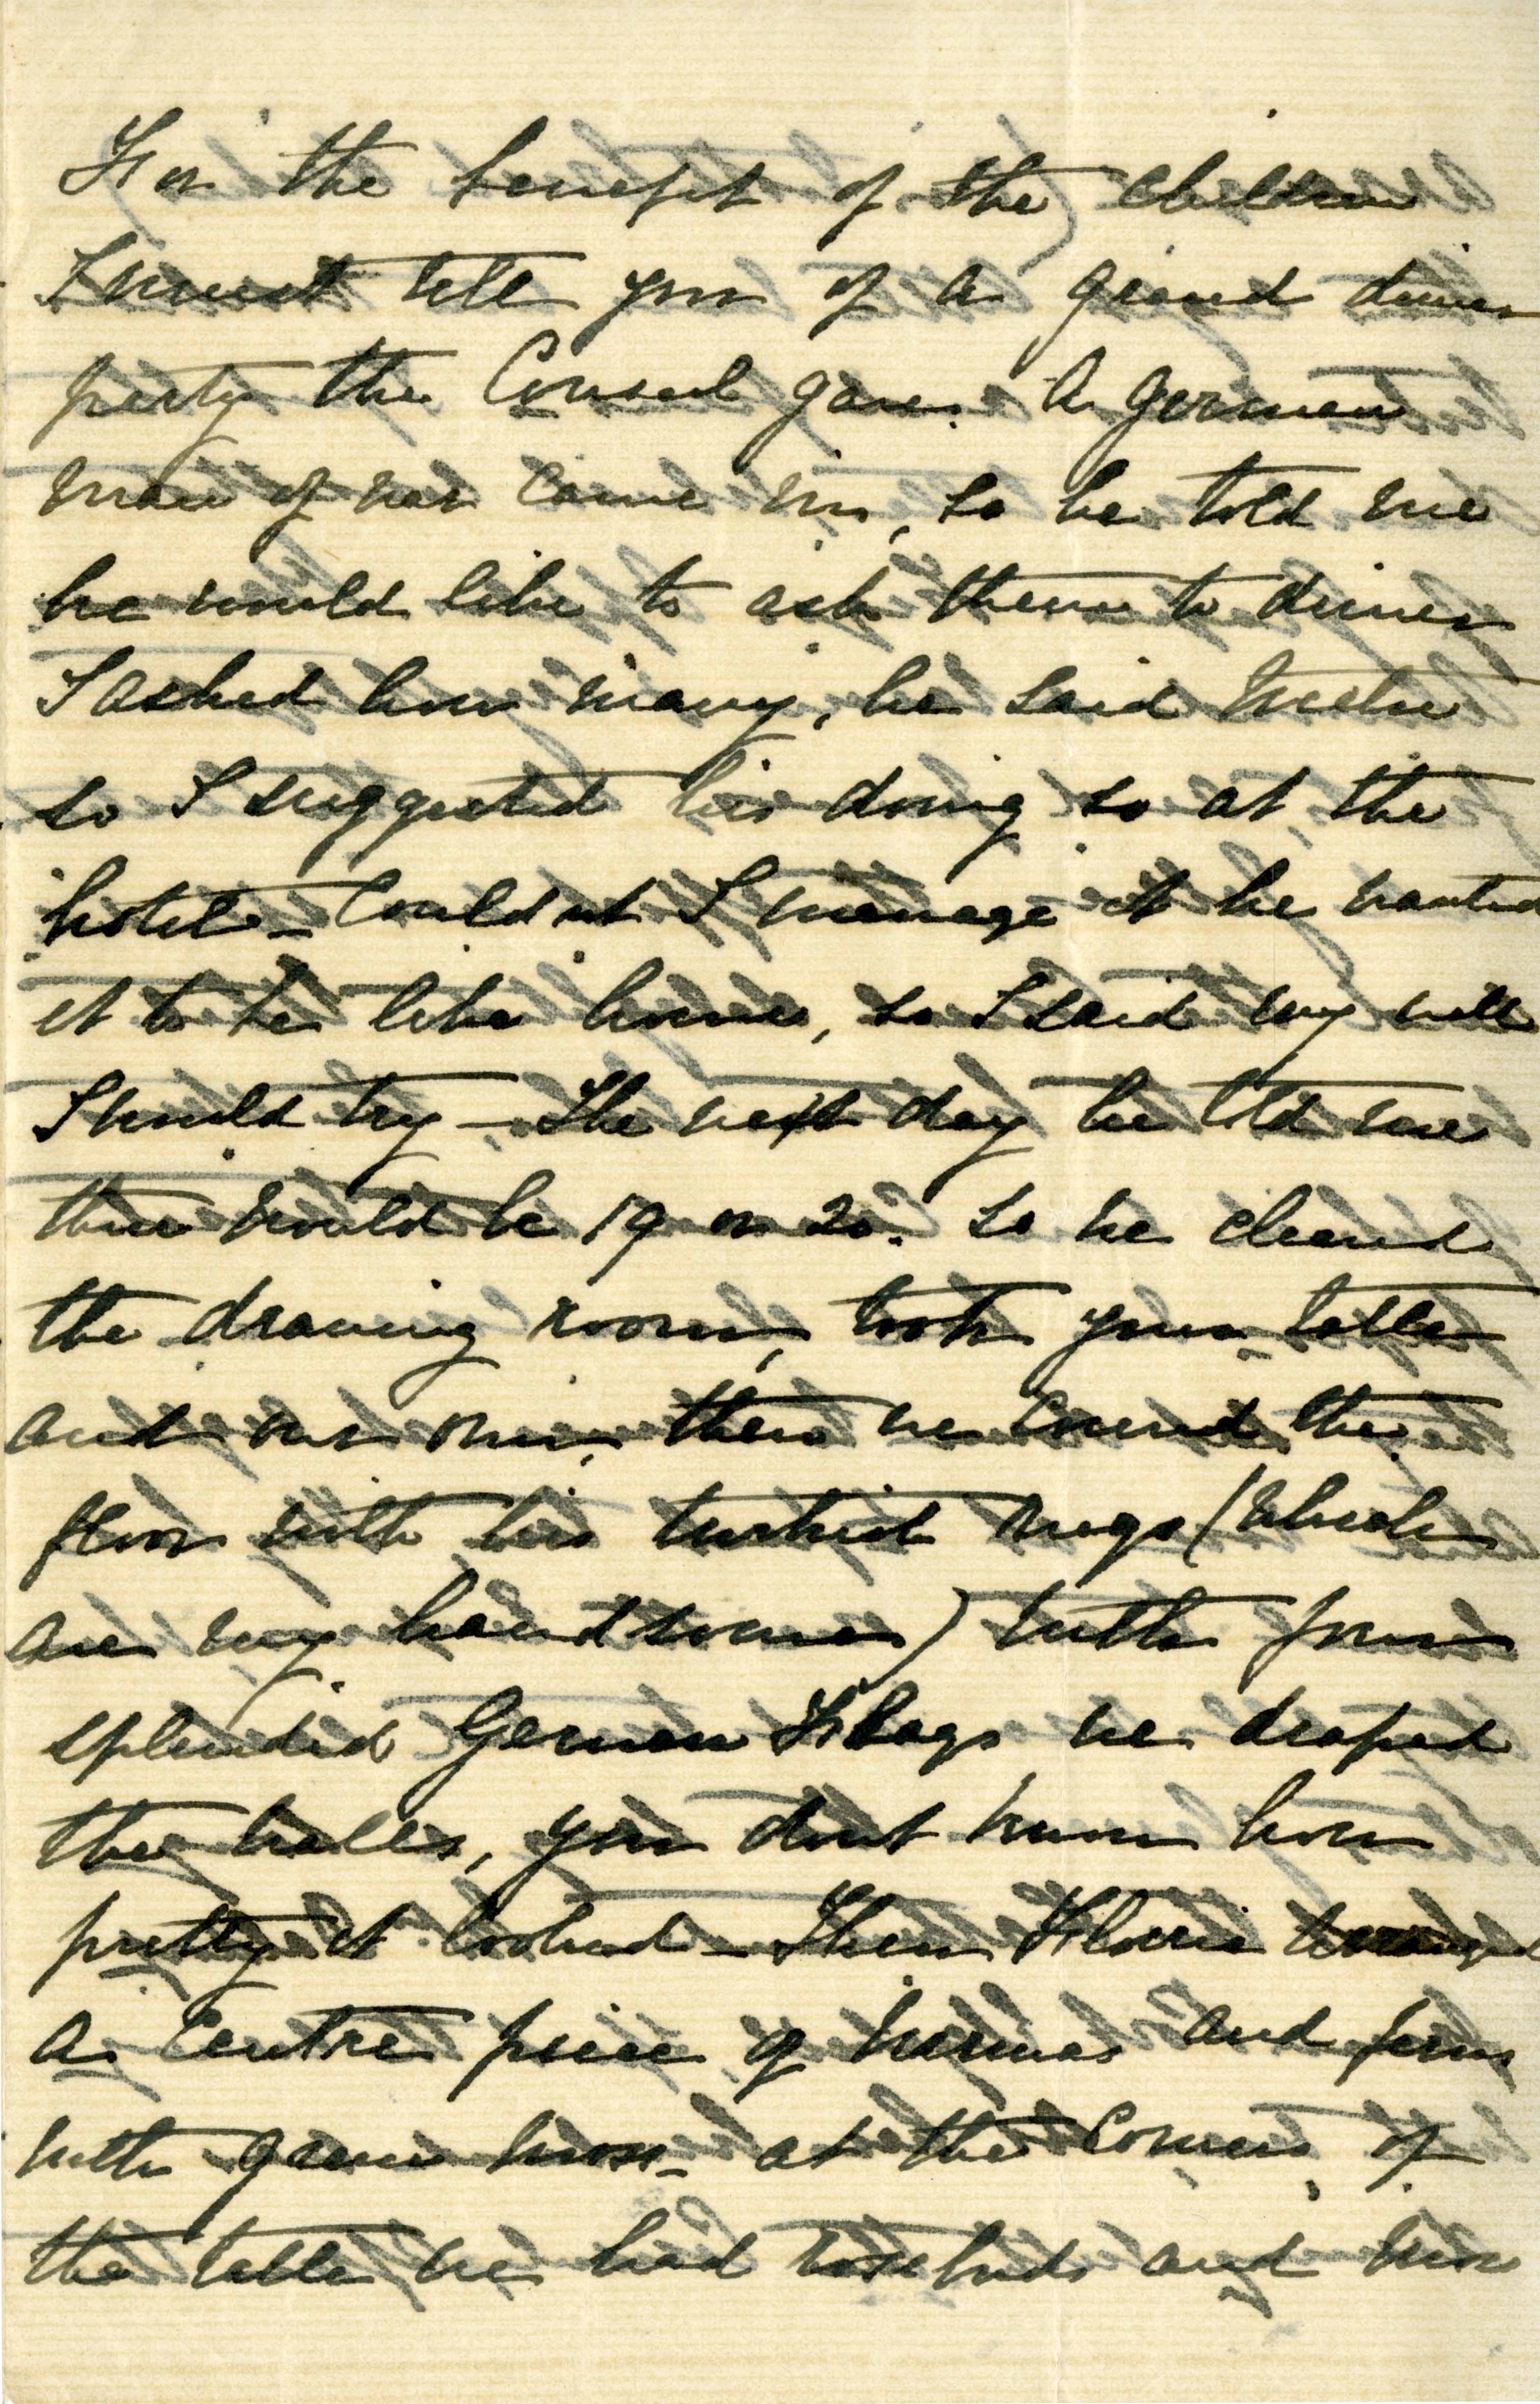 For the benefit of the children
I must tell you of a grand dinner
party the Consul gave. A German
man of war came in, so he told me
he would like to ask them to dinner
I asked how many, he said twelve
so I suggested his doing so at the
hotel - Couldnt I manage it he wanted
it to be like home, so I said very well
I would try - The next day he told me
there would be 19 or 20. So we cleared
the drawing room, took your table
and our own, then we covered the
floor with his turkish rugs (which
are very handsome) with four
splendid German Flags we draped
the walls, you dont know how
pretty it looked - Then Florrie arranged
a centre piece of and ferns
with green moss - at the corners of
the table we had rosebuds and moss